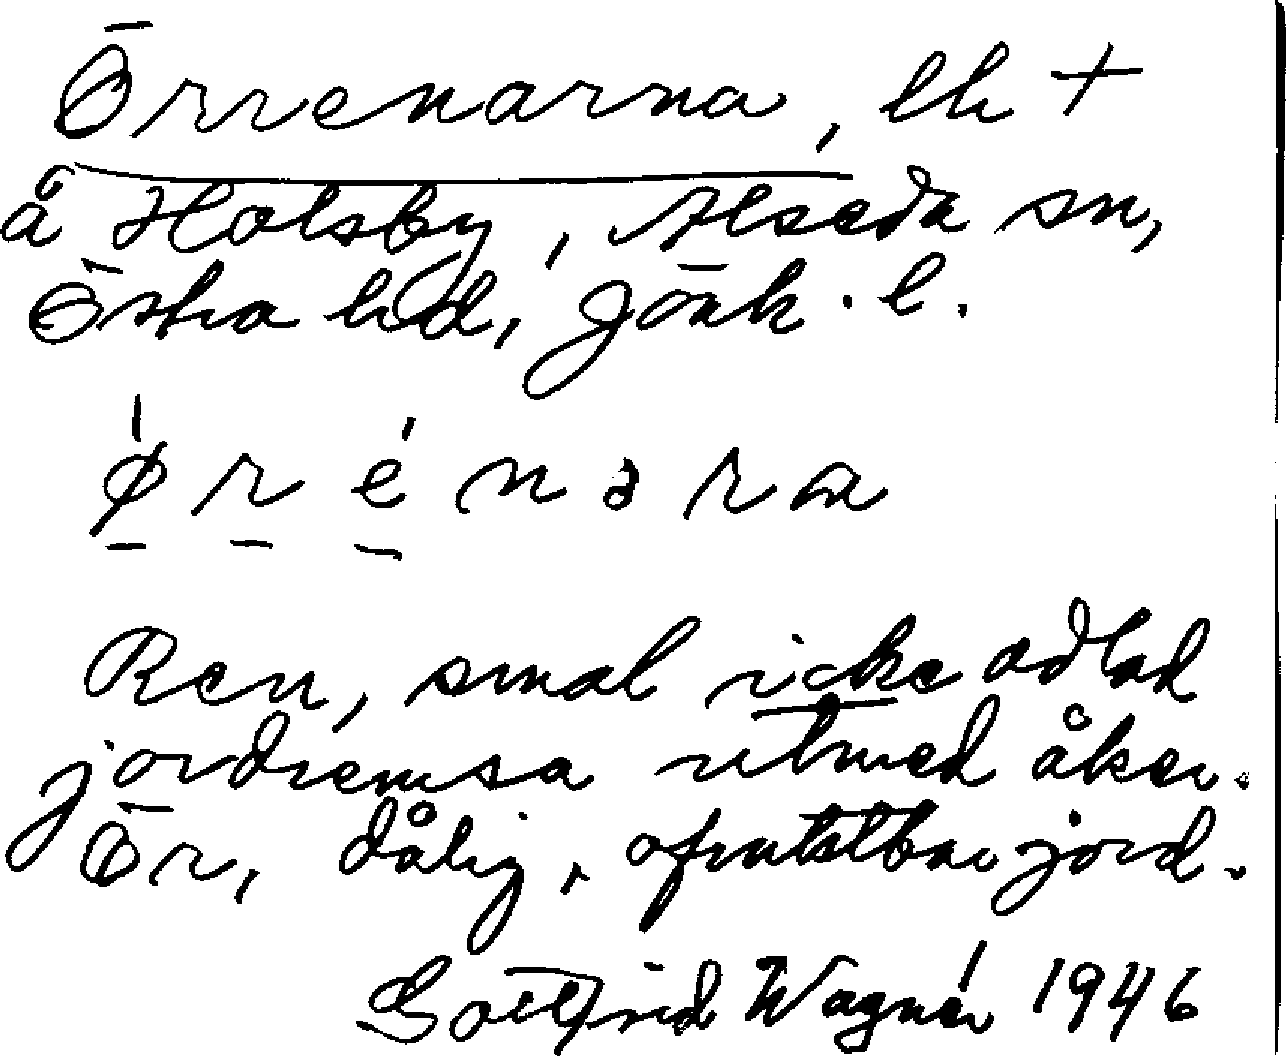 Örrenarna, lh +
å Holsby, Alseda sn,
Östra hd, Jönk. l.
ø r é n ə r a
Ren, smal icke odlad
jordremsa utmed åker.
Ör, dålig, ofruktbar jord.
Gottfrid Wagnér 1946